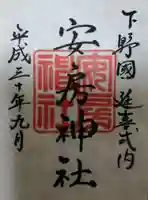 下野國 延喜式内
安房神社
平成三十年九月
安房神社